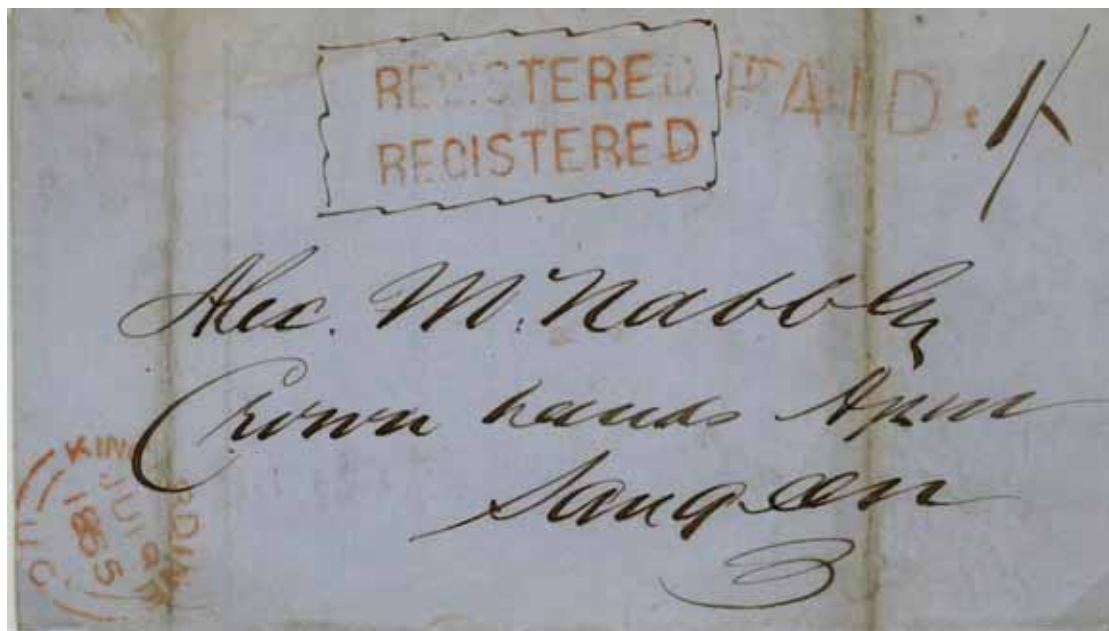 REGISTERED PAID. 1/
REGISTERED
Alex. McNabb Esq
Crown Lands Agent
Saugeen
KINCARDINE
JUL 9
1855
U.C